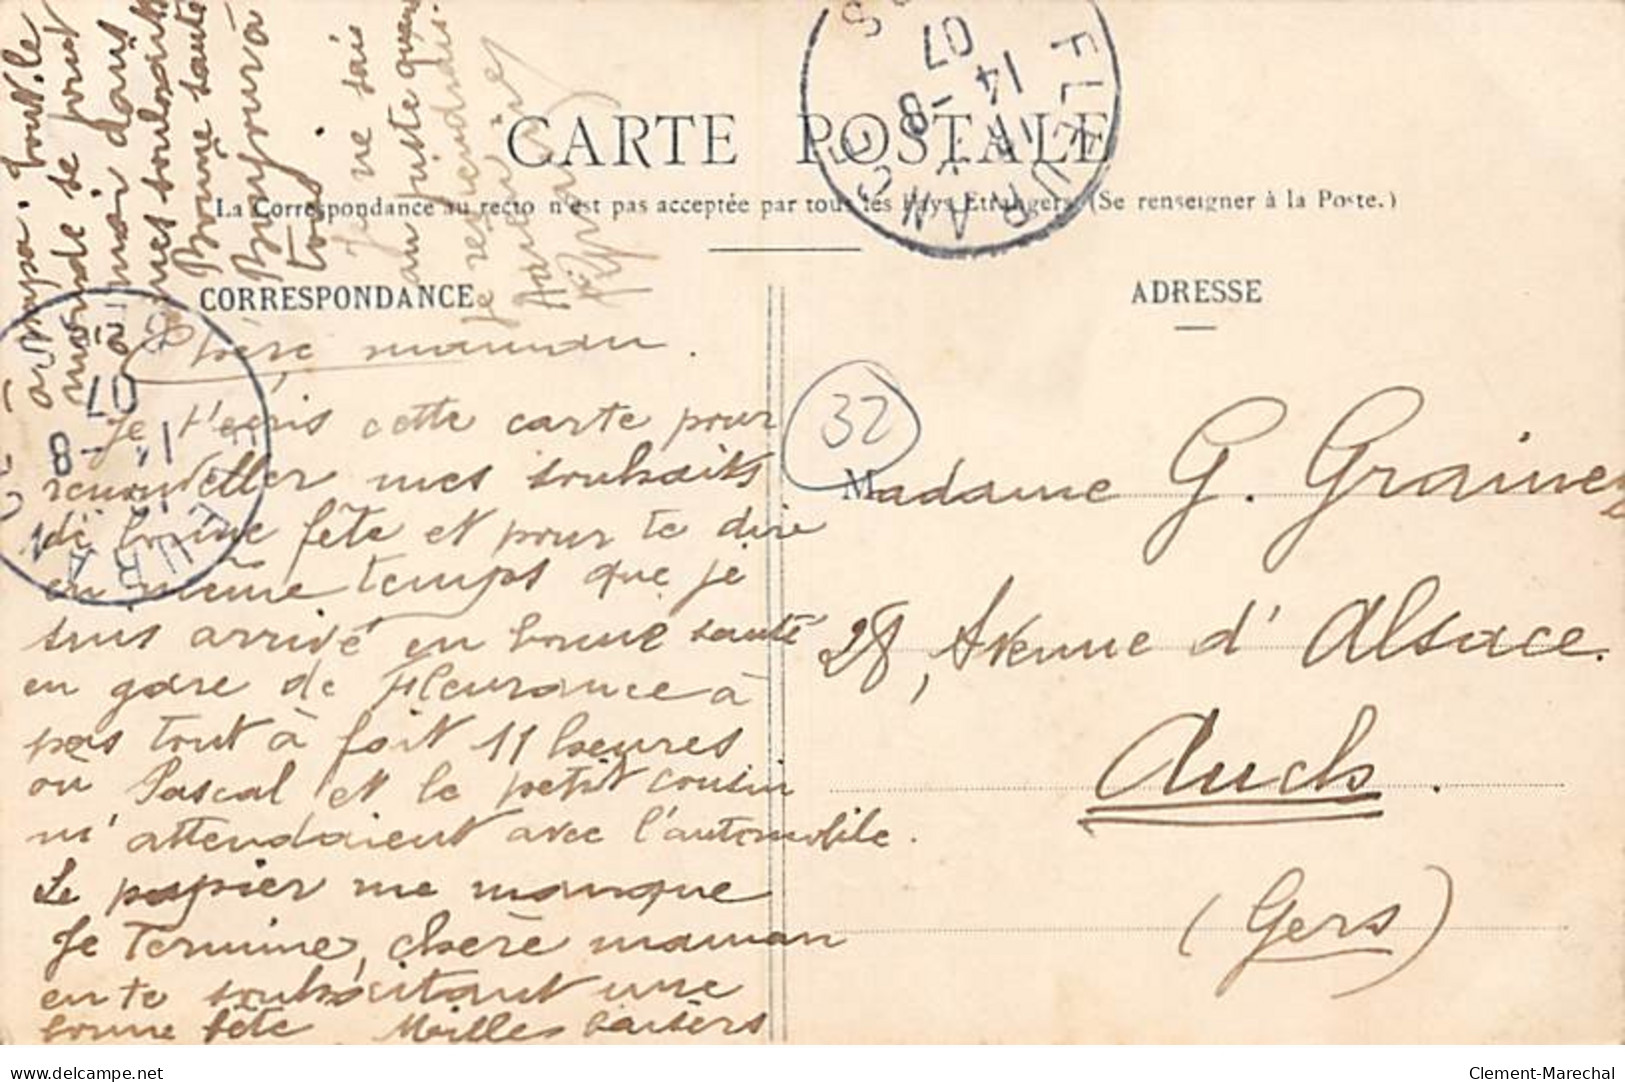 CARTE POSTALE
La Correspondance au recto n'est pas acceptée par tous les Pays Etrangers. (Se renseigner à la Poste.)
CORRESPONDANCE
Chère maman.
Je t'écris cette carte pour
renouveller mes souhaits
de bonne fête et pour te dire
en même temps que je
suis arrivé en bonne santé
en gare de Fleurance à
pas tout à fait 11 heures
où Pascal et le petit cousin
m'attendaient avec l'automobile.
Le papier me manque
Je termine, chère maman
en te souhaitant une
bonne fête Milles baisers
à papa. Tout le
monde se joint
à moi dans
mes souhaits
Bonne santé
Bonjour à
tous
Je ne sais
au juste quand
je reviendrais.
ADRESSE
32
Madame G. Grainez
28, Avenue d'Alsace.
Auch.
(Gers)
FLEURANCE
14 -8
07
FLEURANCE
14 -8
07
delcampe.net
Clement-Marechal